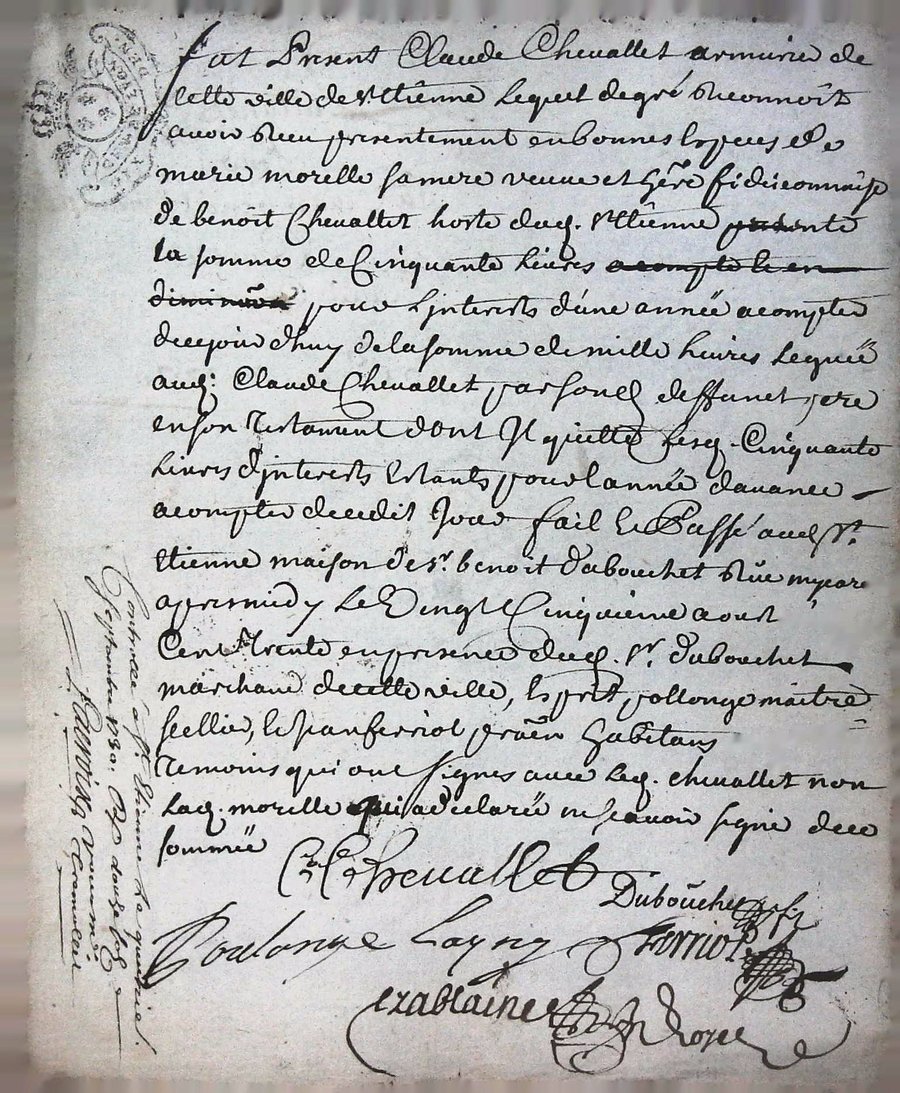 fut Present Claude Chevallet armurier de
cette ville de st Etienne Lequel de gré Reconnoit
avoir Receu presentement en bonnes Especes de
marie morelle sa mere veuve et hére fideicommise
de benoit Chevallet hoste dud. st Etienne
La somme de Cinquante Livres a compte et en
pour L'interests d'une année a compter
de ce jour d'huy de la somme de mille Livres Leguée
aud. Claude Chevallet par son d. deffunct pere
en son Testament dont Il quitte Lesd. Cinquante
Livres d'interests Estants pour l'année d'avance
a compter de cedit Jour fait Et Passé aud. St.
Etienne maison de sr. benoit dubouchet Rüe
apresmidy Le Vingt Cinquieme aoust
Cent Trente en presence dud. sr. dubouchet
marchand de cette ville, Esprit pollonge maitre
sellier, et Jean ferriot habitans
Temoins qui ont signes avec Led. chevallet non
Lad. morelle qui a declaré ne scavoir signe de ce
sommée
C. Chevallet
Dubouchet
Poulonge Ferriot
Controllé a St. Etienne Le
Septembre 1730. Rd douze sols